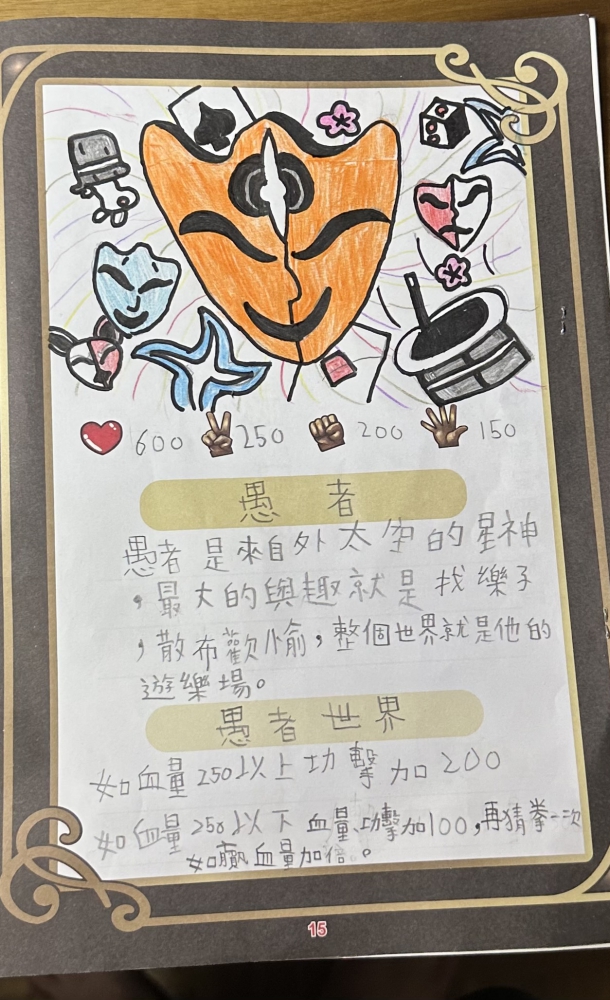 600 250 200 150
愚者
愚者是來自外太空的星神
，最大的興趣就是找樂子
，散布歡愉，整個世界就是他的
遊樂場。
愚者世界
如血量250以上功擊加200
如血量250以下血量功擊加100，再猜拳一次
如贏血量加倍。
15